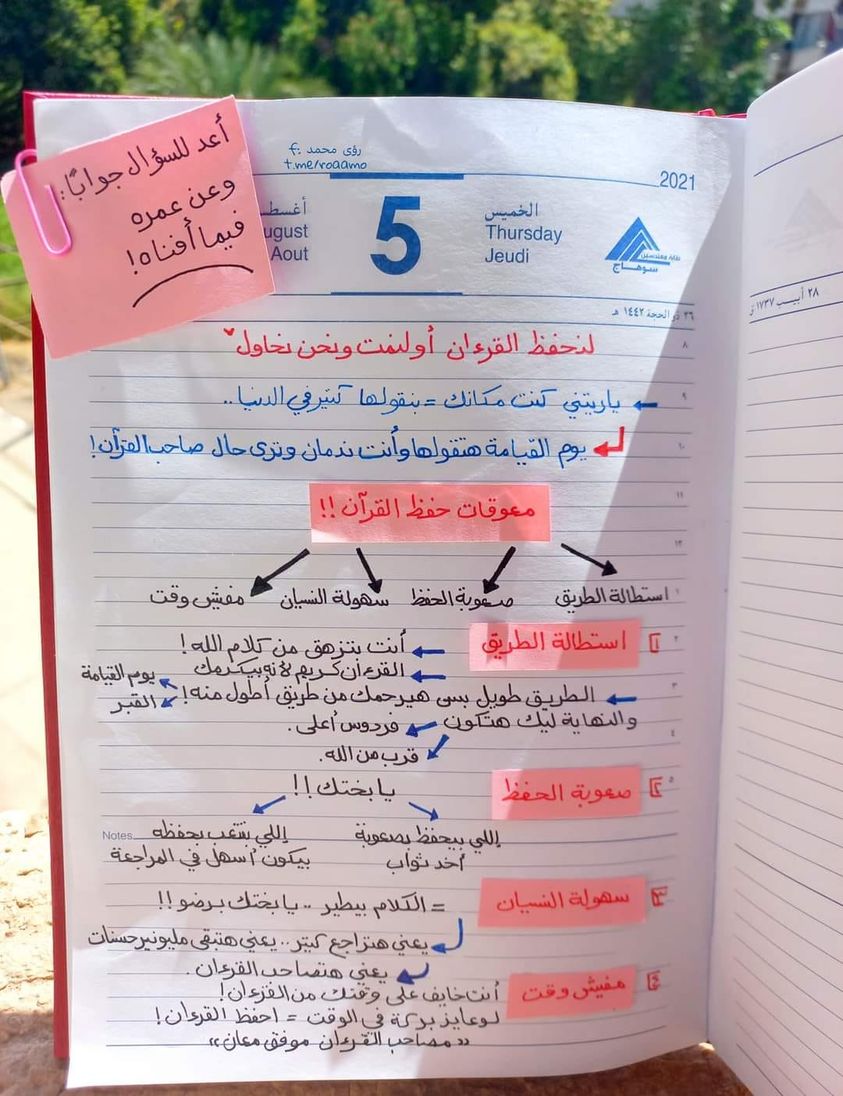 أعد للسؤال جوابًا:
وعن عمره
فيما أفناه!
رؤى محمد :f
t.me/roaamo
2021
الخميس
Thursday
Jeudi
5
أغسط
ugust
Aout
نقابة مهندسين
سوهاج
٢٦ ذو الحجة ١٤٤٢ هـ
٢٨ أبيب ١٧٣٧
لنحفظ القرءان أو لنمت ونحن نحاول
ياريتني كنت مكانك = بنقولها كتير في الدنيا..
يوم القيامة هتقولها وأنت ندمان وترى حال صاحب القرآن!
معوقات حفظ القرآن !!
استطالة الطريق
صعوبة الحفظ
سهولة النسيان
مفيش وقت
١ استطالة الطريق
أنت بتزهق من كلام الله!
القرءان كريم لأنه بيكرمك
الطريق طويل بس هيرحمك من طريق أطول منه!
يوم القيامة
القبر
والنهاية ليك هتكون
فردوس أعلى.
قرب من الله.
٢ صعوبة الحفظ
يا بختك!!
اللي بيحفظ بصعوبة
أخد ثواب
اللي بتتعب بحفظه
بيكون أسهل في المراجعة
Notes
٣ سهولة النسيان
= الكلام بيطير .. يا بختك برضو!!
يعني هتراجع كتير .. يعني هتبقى مليونير حسنات
يعني هتصاحب القرءان.
٤ مفيش وقت
أنت خايف على وقتك من القرءان!
لو عايز بركة في الوقت = احفظ القرءان!
«مصاحب القرءان موفق معان»
٨
٩
١٠
١١
١٢
١
٢
٣
٤
٥